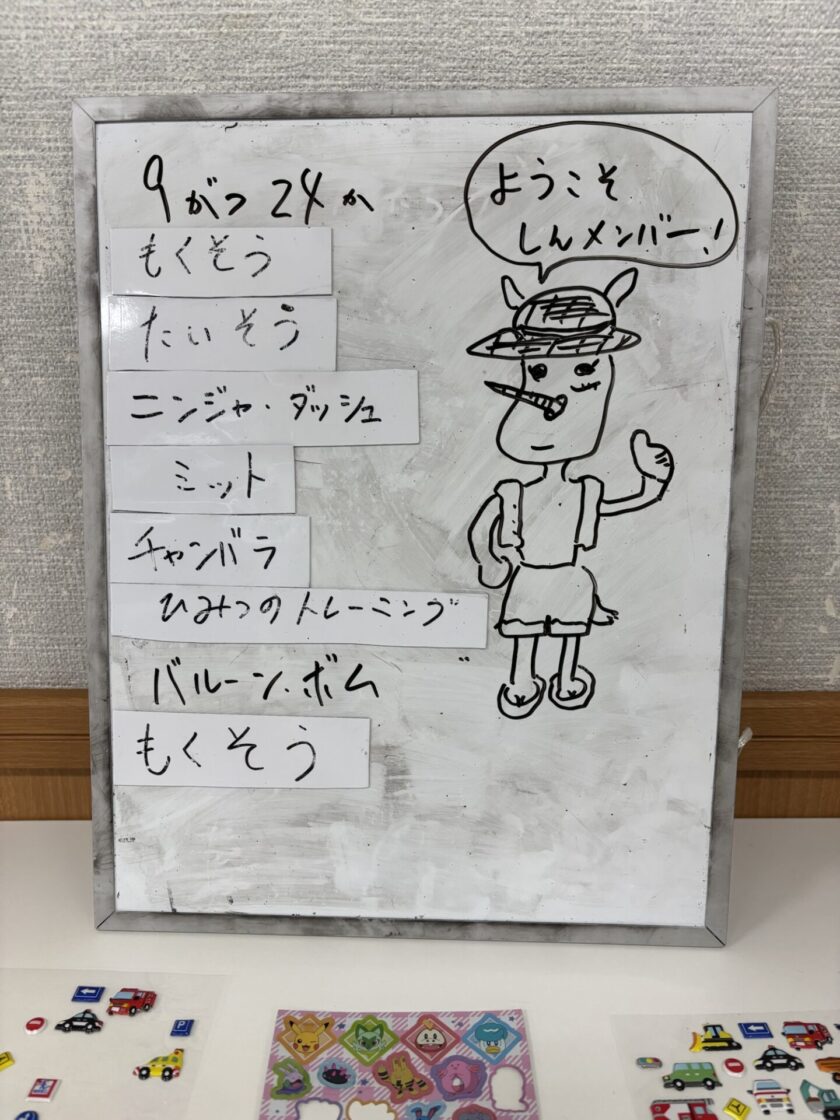 9がつ24か
もくそう
たいそう
ニンジャ・ダッシュ
ミット
チャンバラ
ひみつのトレーニング
バルーン・ボム
もくそう
ようこそ
しんメンバー!
P